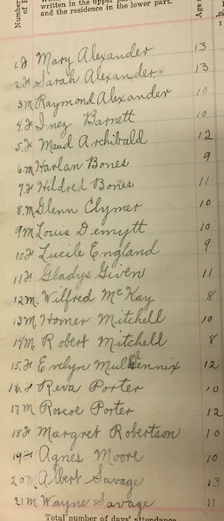 written in the upper
and the residence in the lower part.
Number
Age
1 F Mary Alexander 13
2 F Sarah Alexander 13
3 M Raymond Alexander 10
4 F Inez Barnett 10
5 F Maud Archibald 12
6 M Harlan Bones 9
7 F Hildred Bones 11
8 M Glenn Clymer 10
9 M Louis Demytt 10
10 F Lucile England 9
11 F Gladys Given 11
12 M. Wilfred McKay 8
13 M. Homer Mitchell 10
14 M Robert Mitchell 8
15 F Evelyn 12
16 F Reva Porter 10
17 M Roscoe Porter 12
18 F Margret Robertson 10
19 F Agnes Moore 10
20 M. Albert Savage 13
21 M Wayne Savage 11
Total number of days' attendance